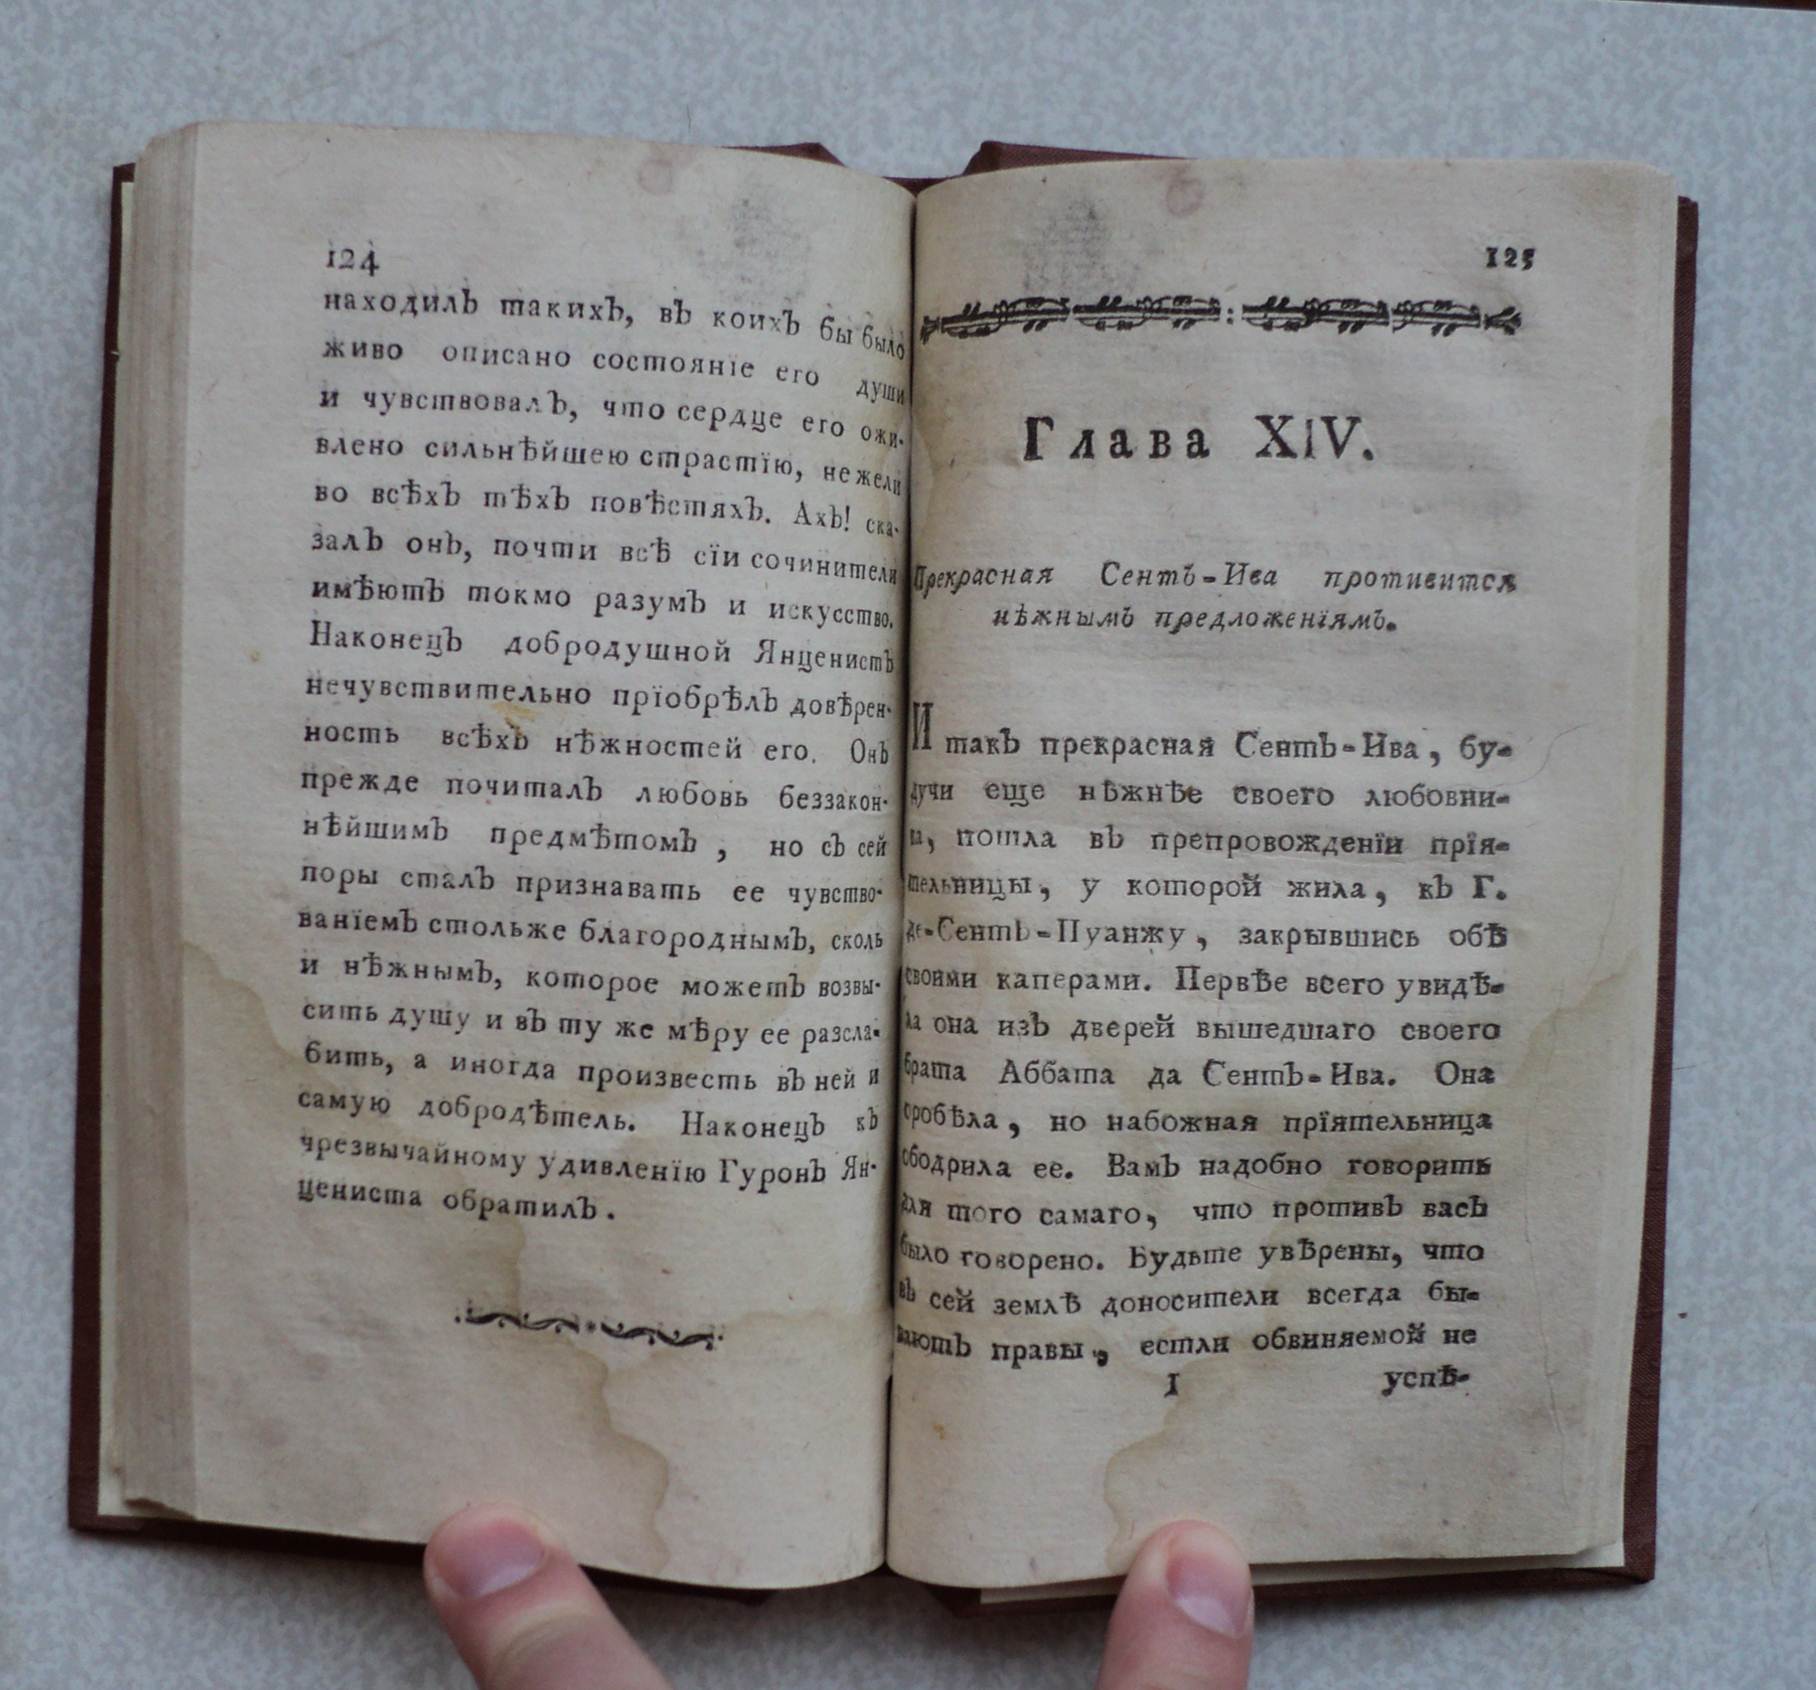 124
находилЪ такихЪ, вЪ коихЪ бы было
живо описано состоянїе его души
и чувствовалЪ, что сердце его ожи-
влено сильнѣйшею страстїю, нежели
во всѣхЪ тѣхЪ повѣстяхЪ. АхЪ! ска-
залЪ онЪ, почти всѣ сїи сочинители
имѣютЪ токмо разумЪ и искусство.
НаконецЪ добродушной ЯнценистЪ
нечувствительно прїобрѣлЪ довѣрен-
ность всѣхЪ нѣжностей его. ОнЪ
прежде почиталЪ любовь беззакон-
нѣйшимЪ предмѣтомЪ, но сЪ сей
поры сталЪ признавать ее чувство-
ванїемЪ стольже благороднымЪ, сколь
и нѣжнымЪ, которое можетЪ возвы-
сить душу и вЪ ту же мѣру ее разсла-
бить, а иногда произвесть вЪ ней и
самую добродѣтель. НаконецЪ кЪ
чрезвычайному удивленїю ГуронЪ Ян-
цениста обратилЪ.
125
Глава XIV.
Прекрасная СентЪ-Ива противится
нѣжнымЪ предложенїямЪ.
И такЪ прекрасная СентЪ-Ива, бу-
дучи еще нѣжнѣе своего любовни-
пошла вЪ препровожденїи прїя-
тельницы, у которой жила, кЪ Г.
де-СентЪ-Пуанжу, закрывшись обѣ
своими каперами. Первѣе всего увидѣ-
ла она изЪ дверей вышедшаго своего
брата Аббата да СентЪ-Ива. Она
оробѣла, но набожная прїятельница
ободрила ее. ВамЪ надобно говорить
для того самаго, что противЪ васЪ
было говорено. Будьте увѣрены, что
вЪ сей землѣ доносители всегда бы-
ваютЪ правы, естли обвиняемой не
I успѣ-